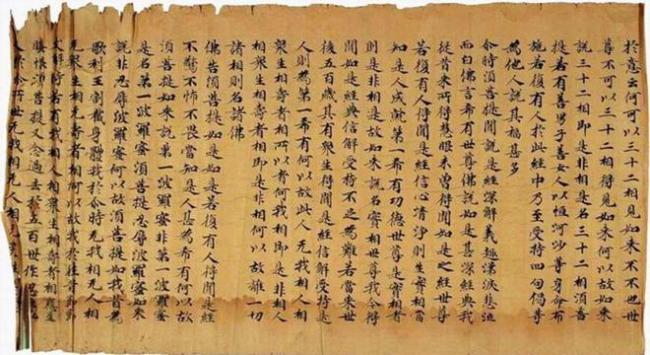 於意云何可以三十二相見如來不不也世
尊不可以三十二相得見如來何以故如來
說三十二相即是非相是名三十二相須菩
提若有善男子善女人以恒河沙等身命布
施若復有人於此經中乃至受持四句偈等
為他人說其福甚多
尒時須菩提聞說是經深解義趣涕淚悲泣
而白佛言希有世尊佛說如是甚深經典我
從昔來所得慧眼未曾得聞如是之經世尊
若復有人得聞是經信心清淨則生實相當
知是人成就第一希有功德世尊是實相者
則是非相是故如來說名實相世尊我今得
聞如是經典信解受持不足為難若當來世
後五百歲其有眾生得聞是經信解受持是
人則為第一希有何以故此人无我相人相
眾生相壽者相所以者何我相即是非相人
相眾生相壽者相即是非相何以故離一切
諸相則名諸佛
佛告須菩提如是如是若復有人得聞是經
不驚不怖不畏當知是人甚為希有何以故
須菩提如來說第一波羅蜜非第一波羅蜜
是名第一波羅蜜須菩提忍辱波羅蜜如來
說非忍辱波羅蜜何以故須菩提如我昔為
歌利王割截身體我於尒時无我相无人相
无眾生相无壽者相何以故我於往昔節節
支解時若有我相人相眾生相壽者相應生
瞋恨須菩提又念過去於五百世作忍
人於尒所世无我相无人相